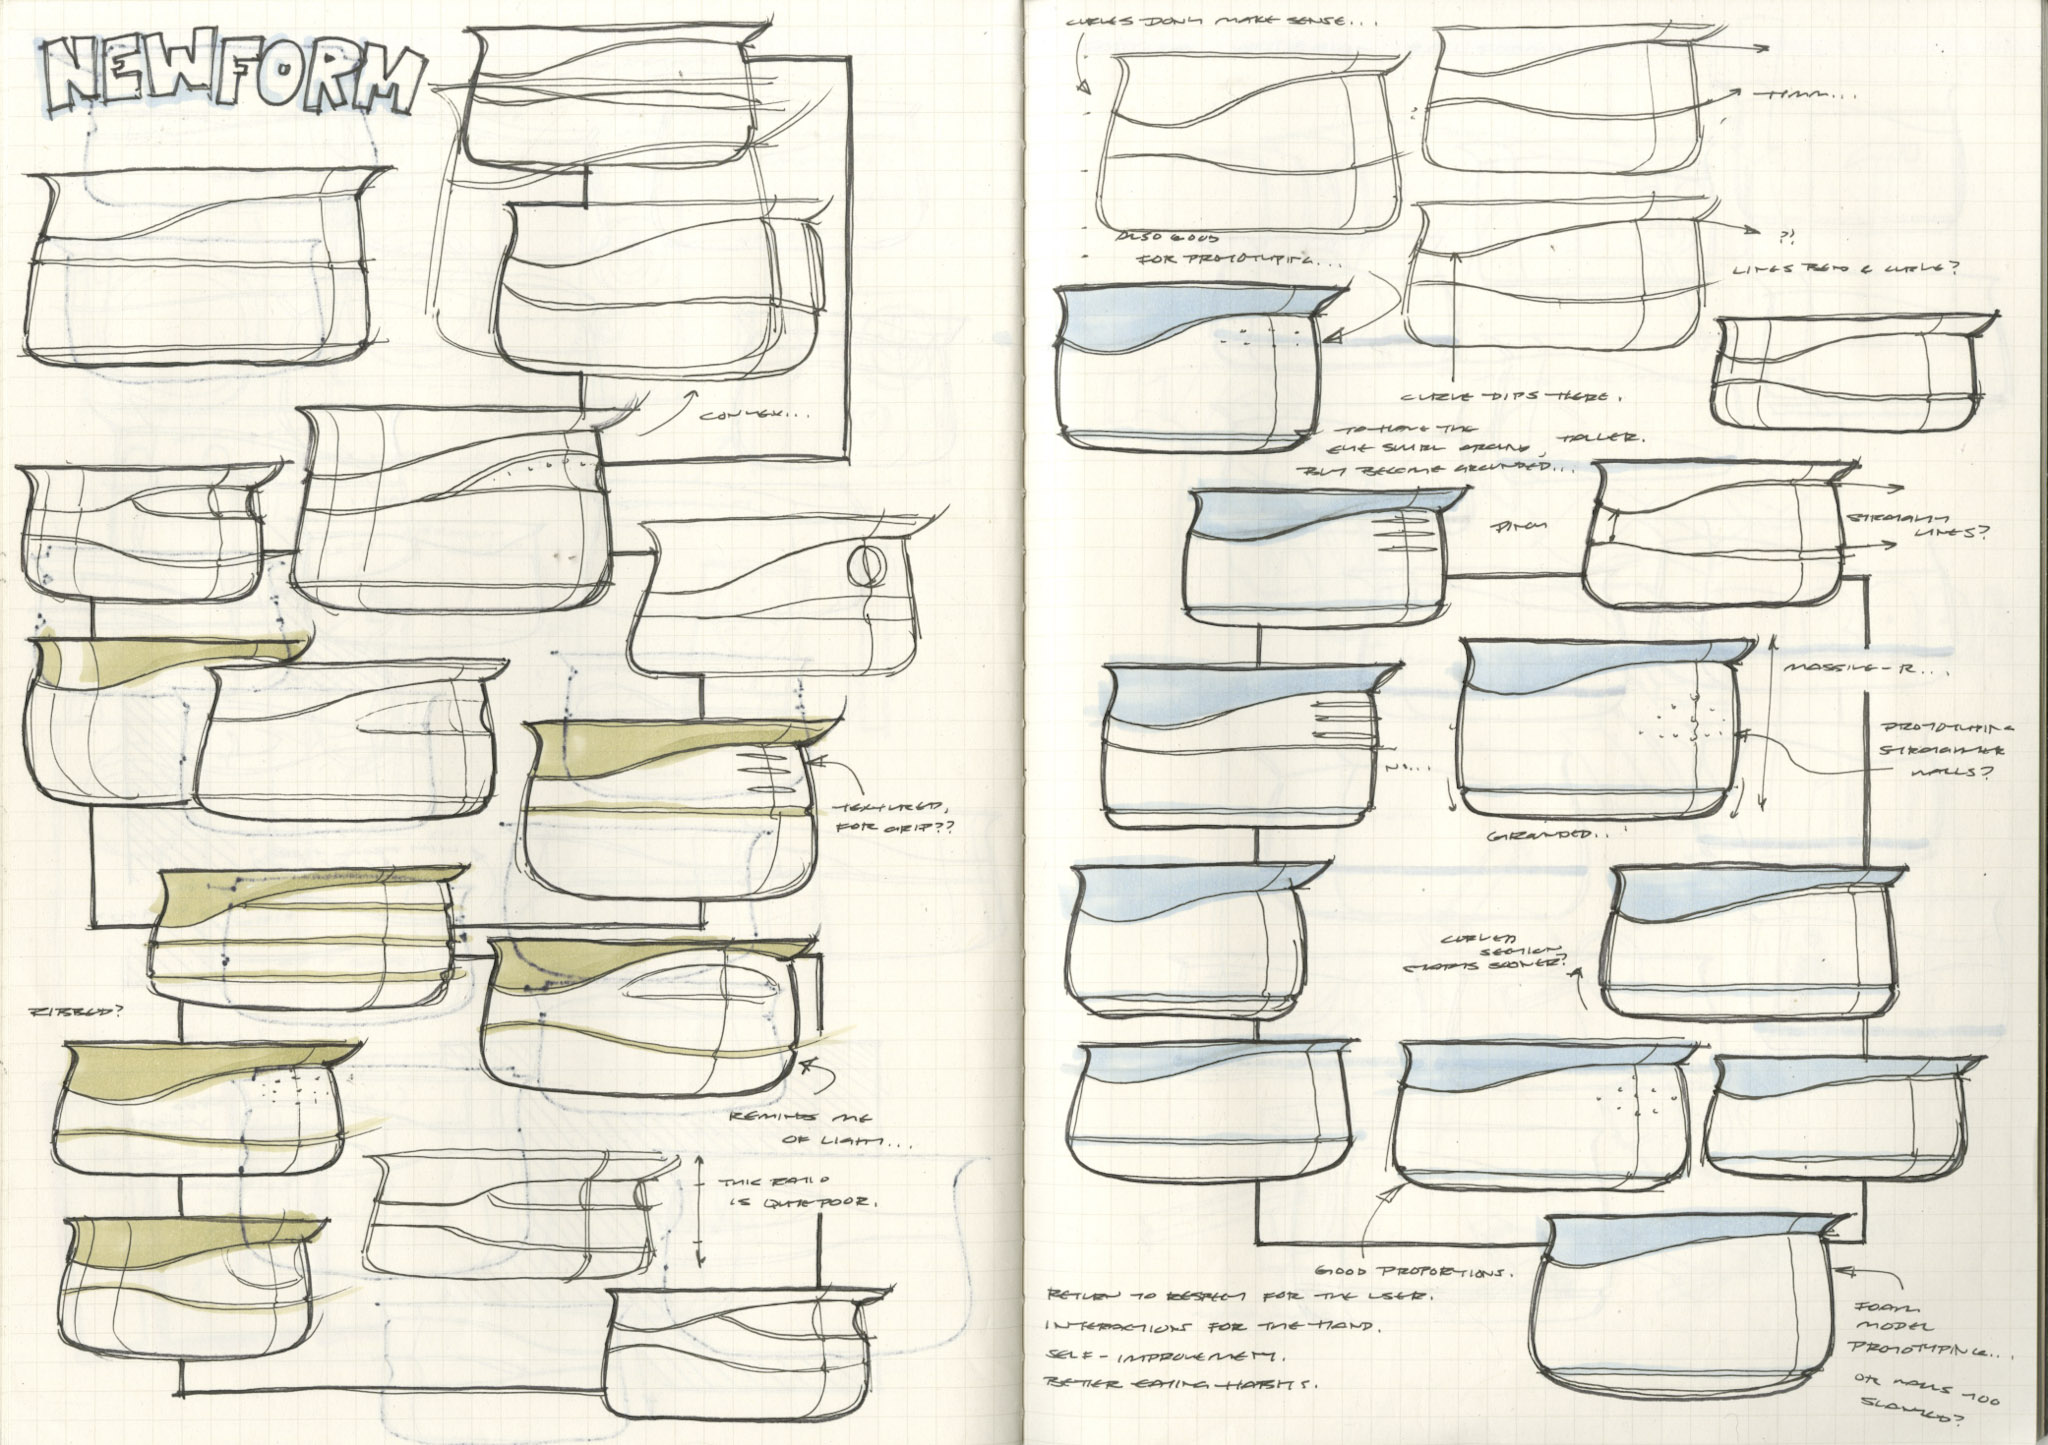 NEWFORM
CONVEX...
TEXTURED,
FOR GRIP??
RIBBED?
REMINDS ME
OF LIGHT...
THIS RATIO
IS QUITE POOR.
CURVES DON'T MAKE SENSE...
HMM...
ALSO GOOD
FOR PROTOTYPING...
??
LINES READ & CURVE?
CURVE DIPS THERE.
TO HAVE THE
SWIRL AROUND,
BUT BECOME GROUNDED...
TALLER.
PINCH
STRAIGHT
LINES?
MASSIVE-R...
PROTOTYPING
STRAIGHTER
WALLS?
NO...
GROUNDED...
CURVED
SECTION
STARTS SOONER?
GOOD PROPORTIONS.
RETURN TO RESPECT FOR THE USER.
INTERACTIONS FOR THE HAND.
SELF-IMPROVEMENT.
BETTER EATING HABITS.
FOAM
MODEL
PROTOTYPING...
OR WALLS TOO
SLANTED?